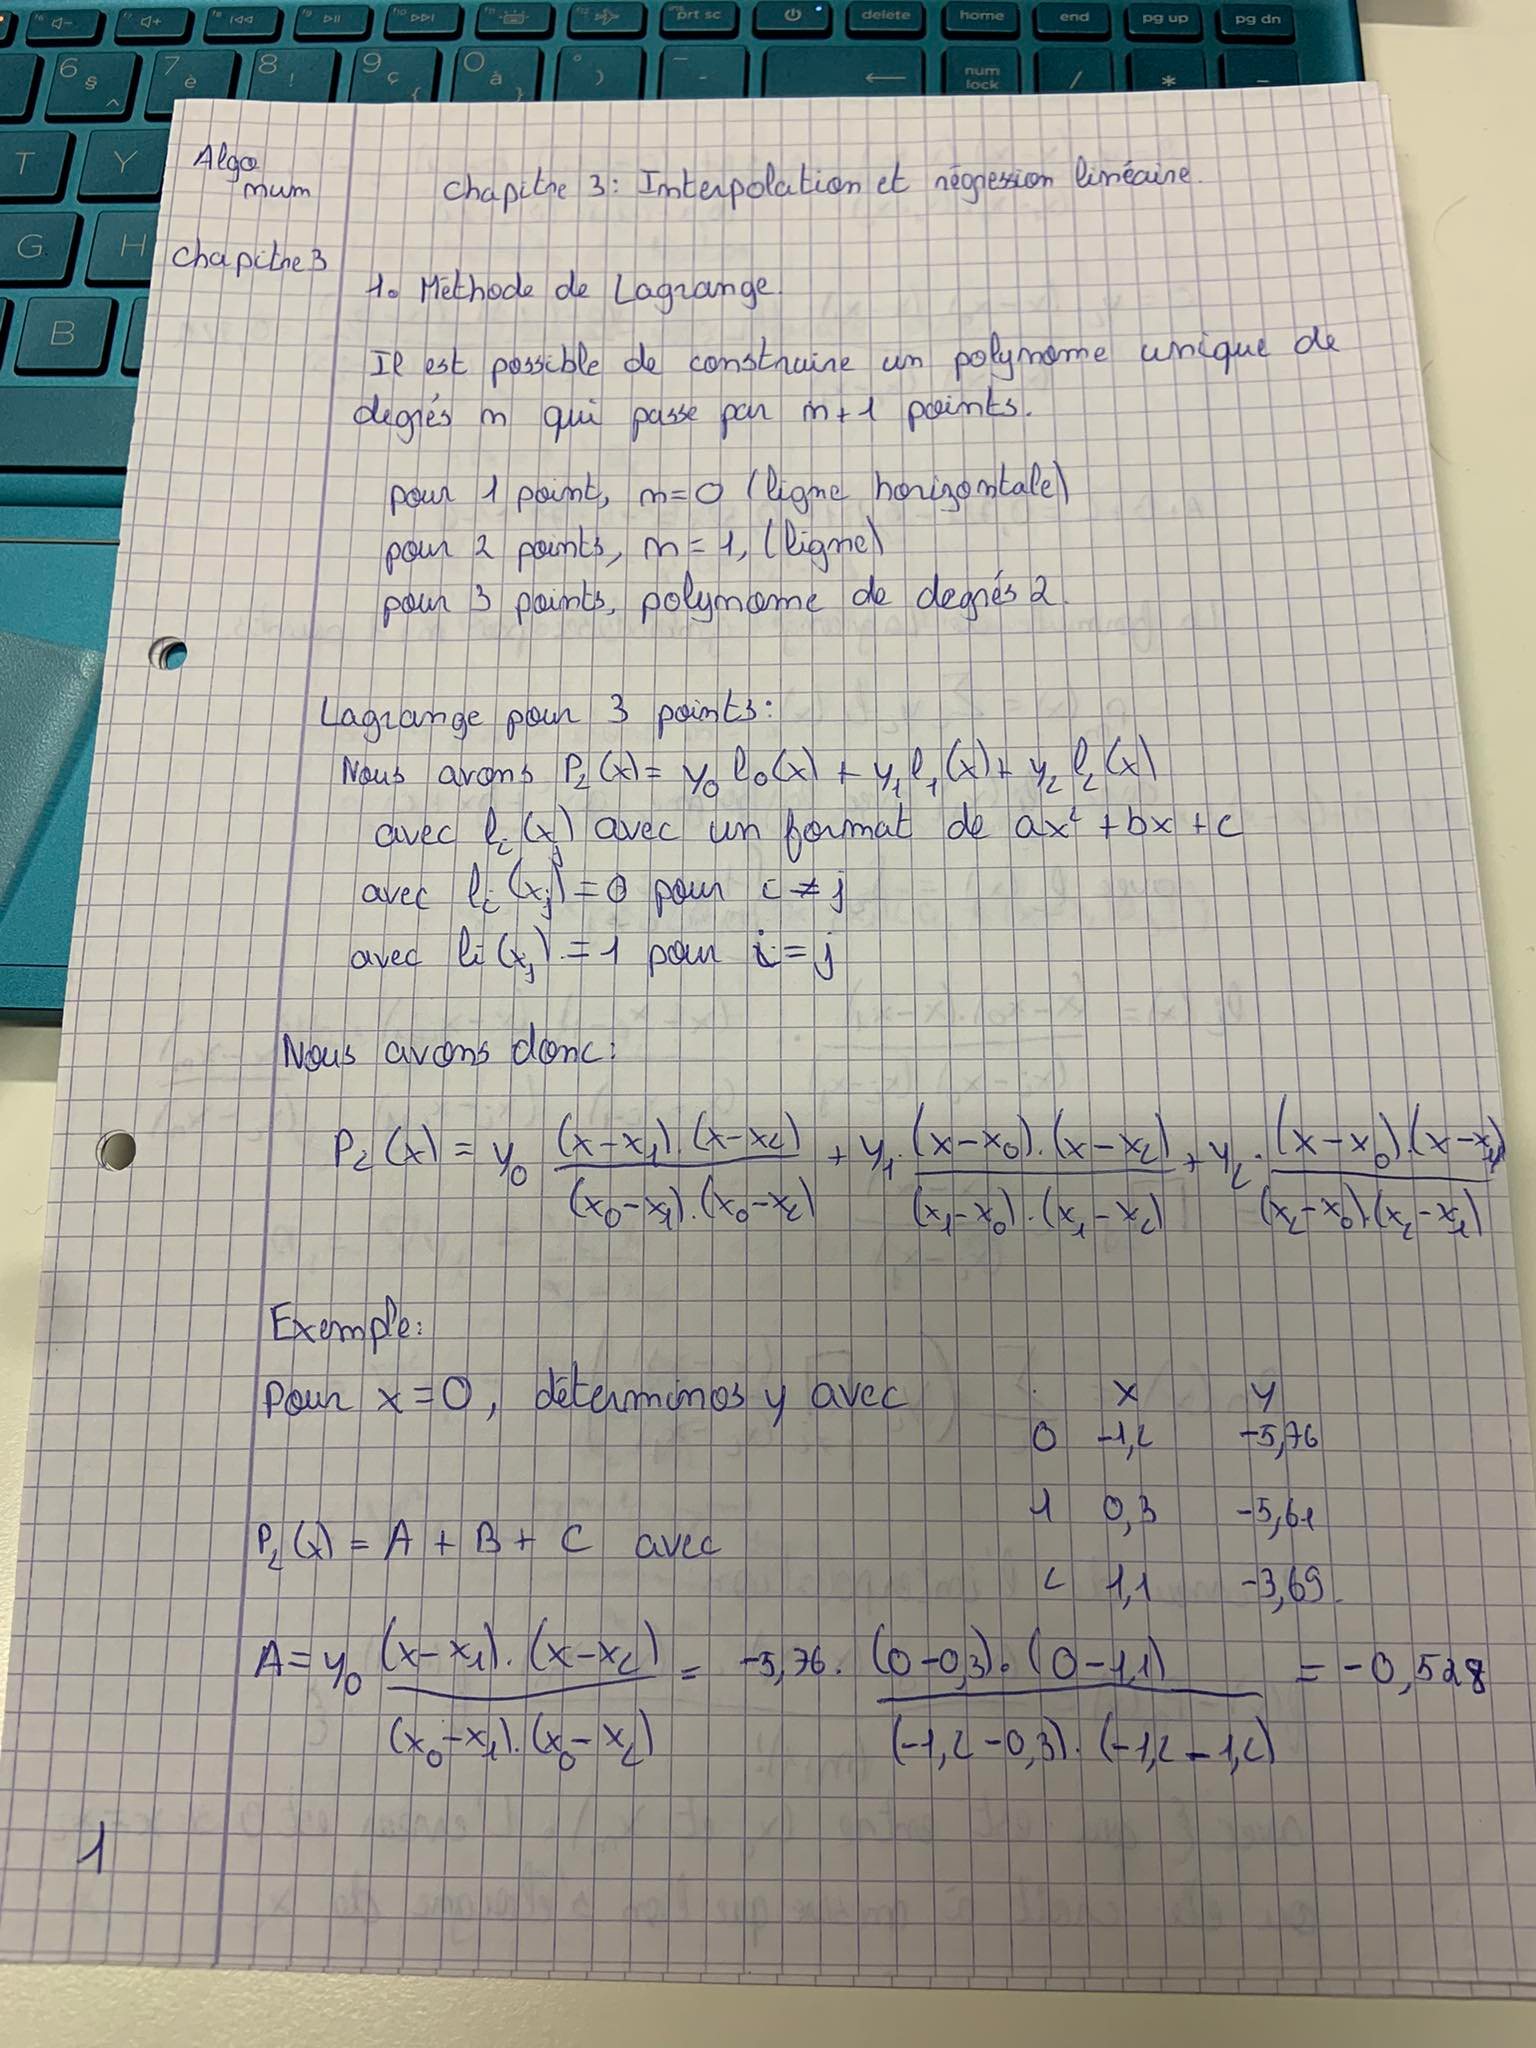 prt sc delete home end pg up pg dn
6 § ^ 7 è 8 ! 9 ç { 0 à } ° ) _ - num lock / * -
T Y
G H
B
Algo num
Chapitre 3: Interpolation et régression linéaire.
Chapitre 3
1. Méthode de Lagrange.
Il est possible de construire un polynome unique de
degrés n qui passe par n+1 points.
pour 1 point, n=0 (ligne horizontale)
pour 2 points, n=1, (ligne)
pour 3 points, polynome de degrés 2.
Lagrange pour 3 points:
Nous avons P₂(x) = y₀ l₀(x) + y₁ l₁(x) + y₂ l₂(x)
avec lᵢ(xⱼ) avec un format de ax² + bx + c
avec lᵢ(xⱼ) = 0 pour i ≠ j
avec lᵢ(xⱼ) = 1 pour i = j
Nous avons donc:
P₂(x) = y₀ (x-x₁).(x-x₂) / (x₀-x₁).(x₀-x₂) + y₁. (x-x₀).(x-x₂) / (x₁-x₀).(x₁-x₂) + y₂. (x-x₀).(x-x₁) / (x₂-x₀).(x₂-x₁)
Exemple:
Pour x=0, déterminos y avec
x y
0 -1,2 -5,76
1 0,3 -5,61
2 1,1 -3,69.
P₂(x) = A + B + C avec
A = y₀ (x-x₁).(x-x₂) / (x₀-x₁).(x₀-x₂) = -5,76. (0-0,3).(0-1,1) / (-1,2-0,3).(-1,2-1,2) = -0,528
1